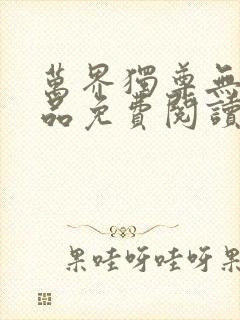 萬界獨尊無
品免費閱讀
果哇呀哇呀果